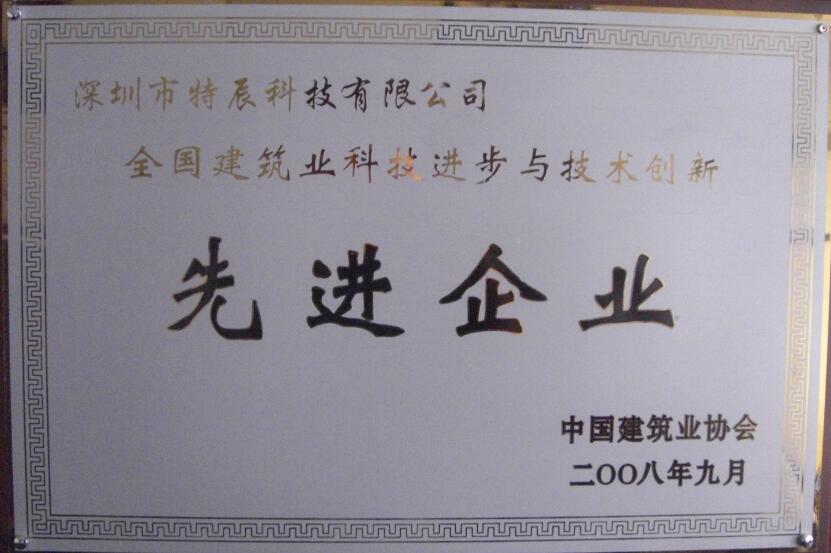 深圳市特辰科技有限公司
全国建筑业科技进步与技术创新
先进企业
中国建筑业协会
二〇〇八年九月